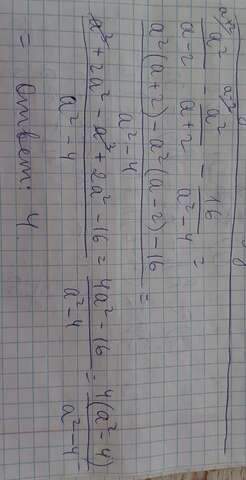 a+2/ a²/(a-2) - a-2/ a²/(a+2) - 16/(a²-4) =
(a²(a+2) - a²(a-2) - 16)/(a²-4) =
(a³ + 2a² - a³ + 2a² - 16)/(a²-4) = (4a² - 16)/(a²-4) = (4(a²-4))/(a²-4)
= Ответ: 4